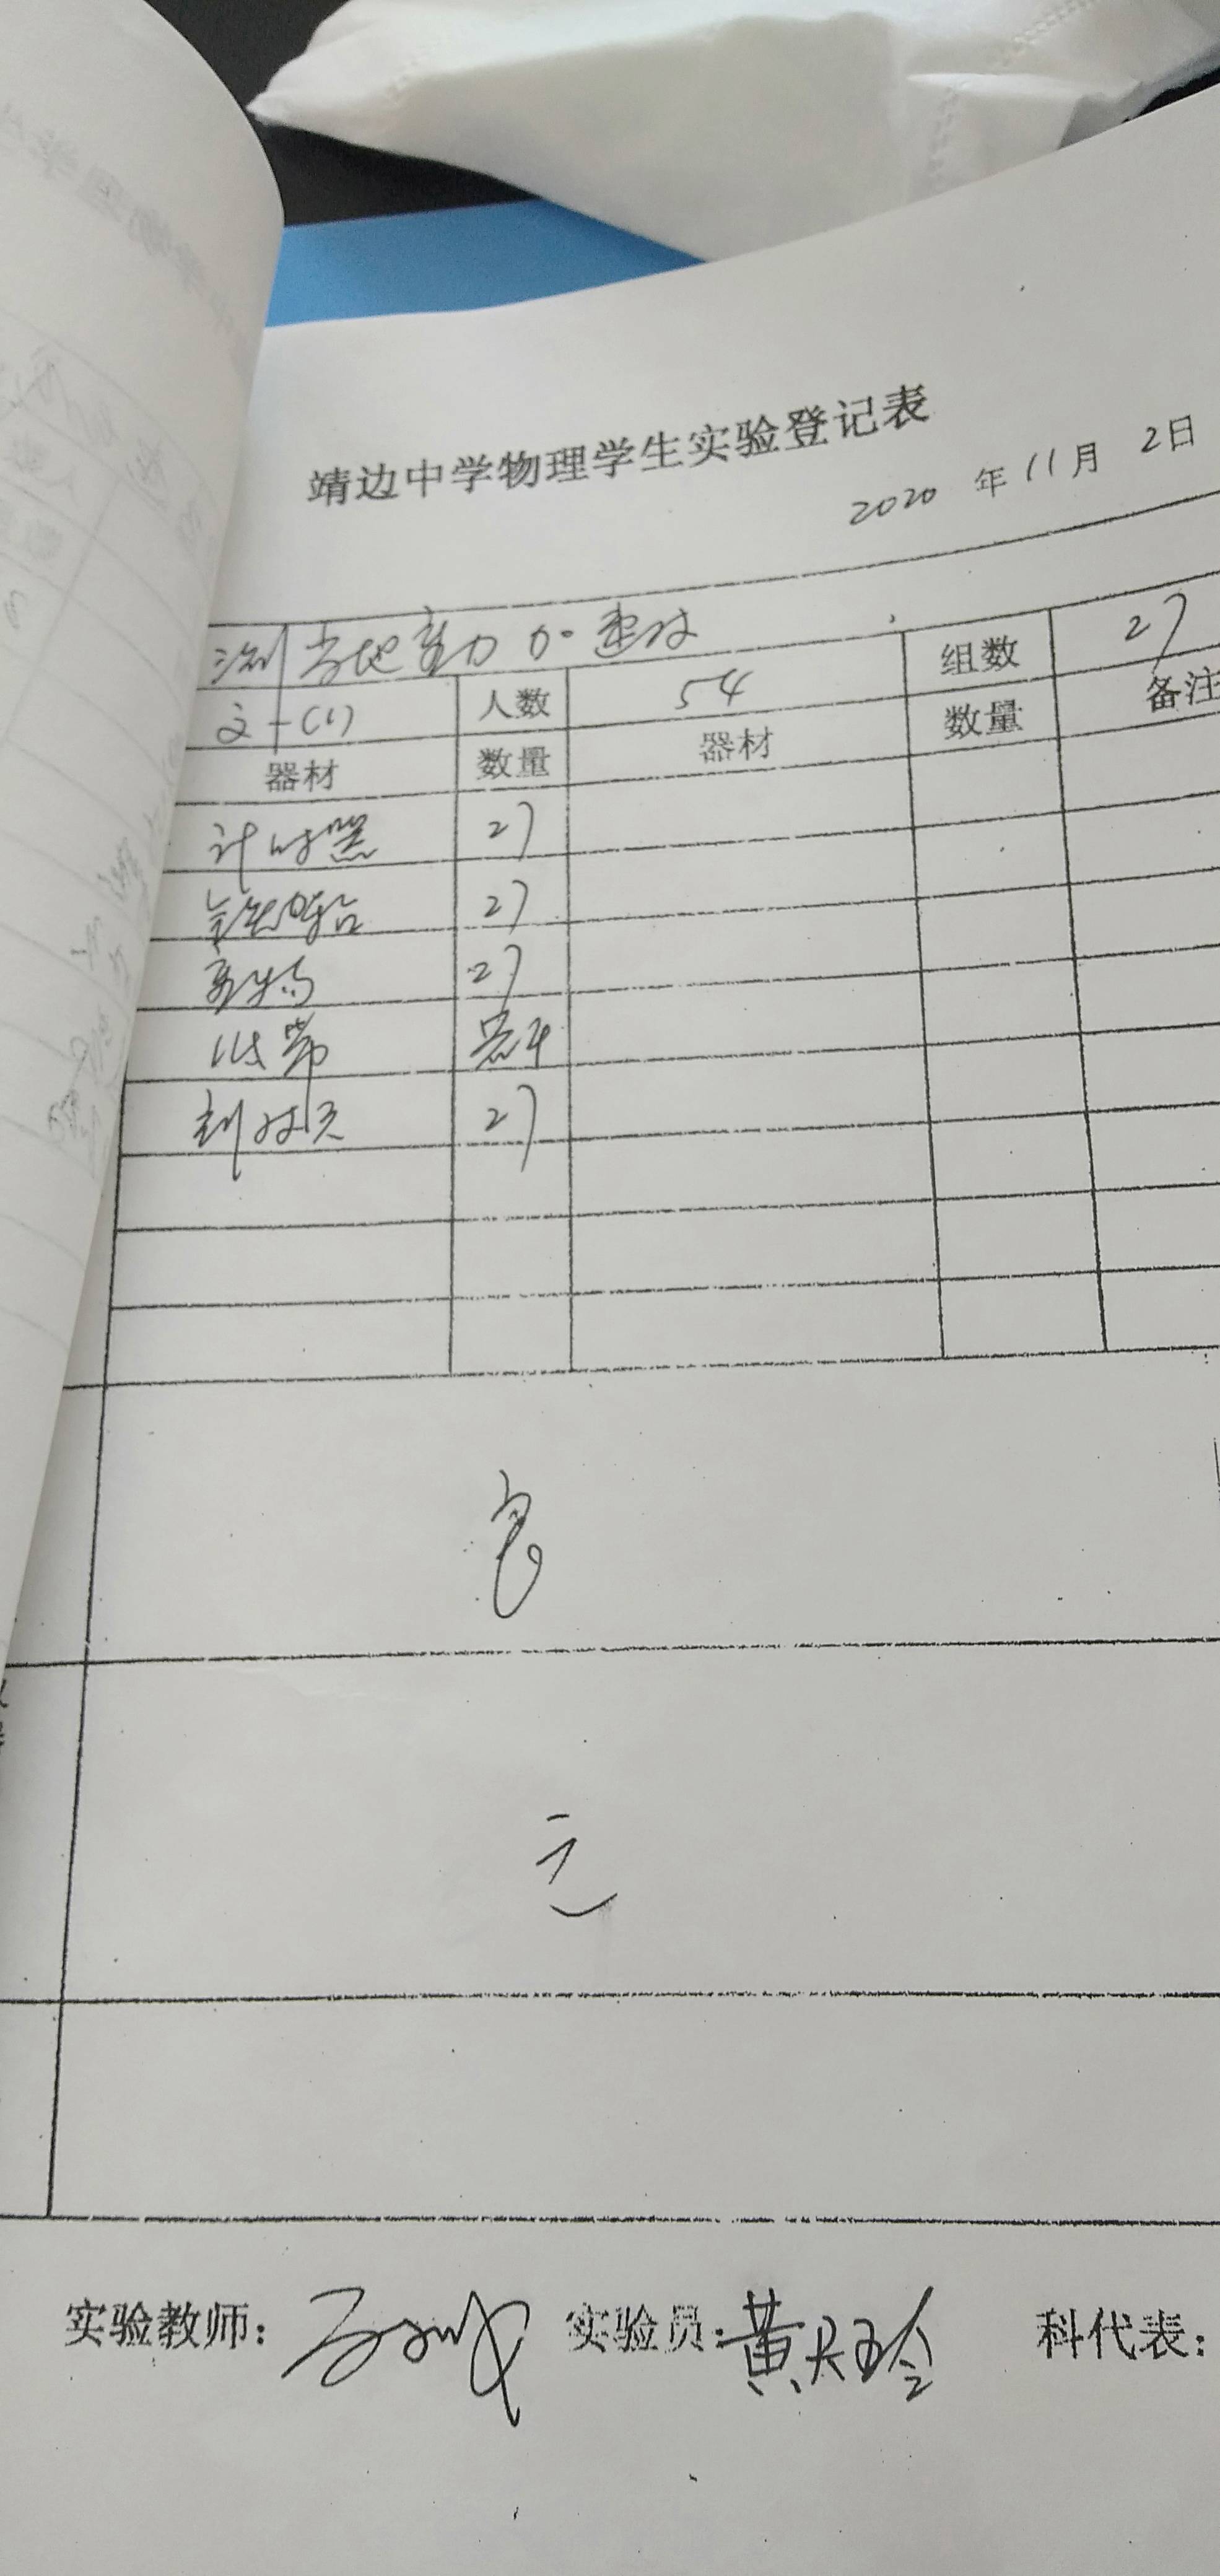 靖边中学物理学生实验登记表
2020 年 11 月 2 日
测当地重力加速度 组数 27
高一(1) 人数 54 数量 备注
器材 数量 器材
计时器 27
铁架台 27
重物 27
纸带 若干
刻度尺 27
良
无
实验教师: 实验员: 黄 玲 科代表: